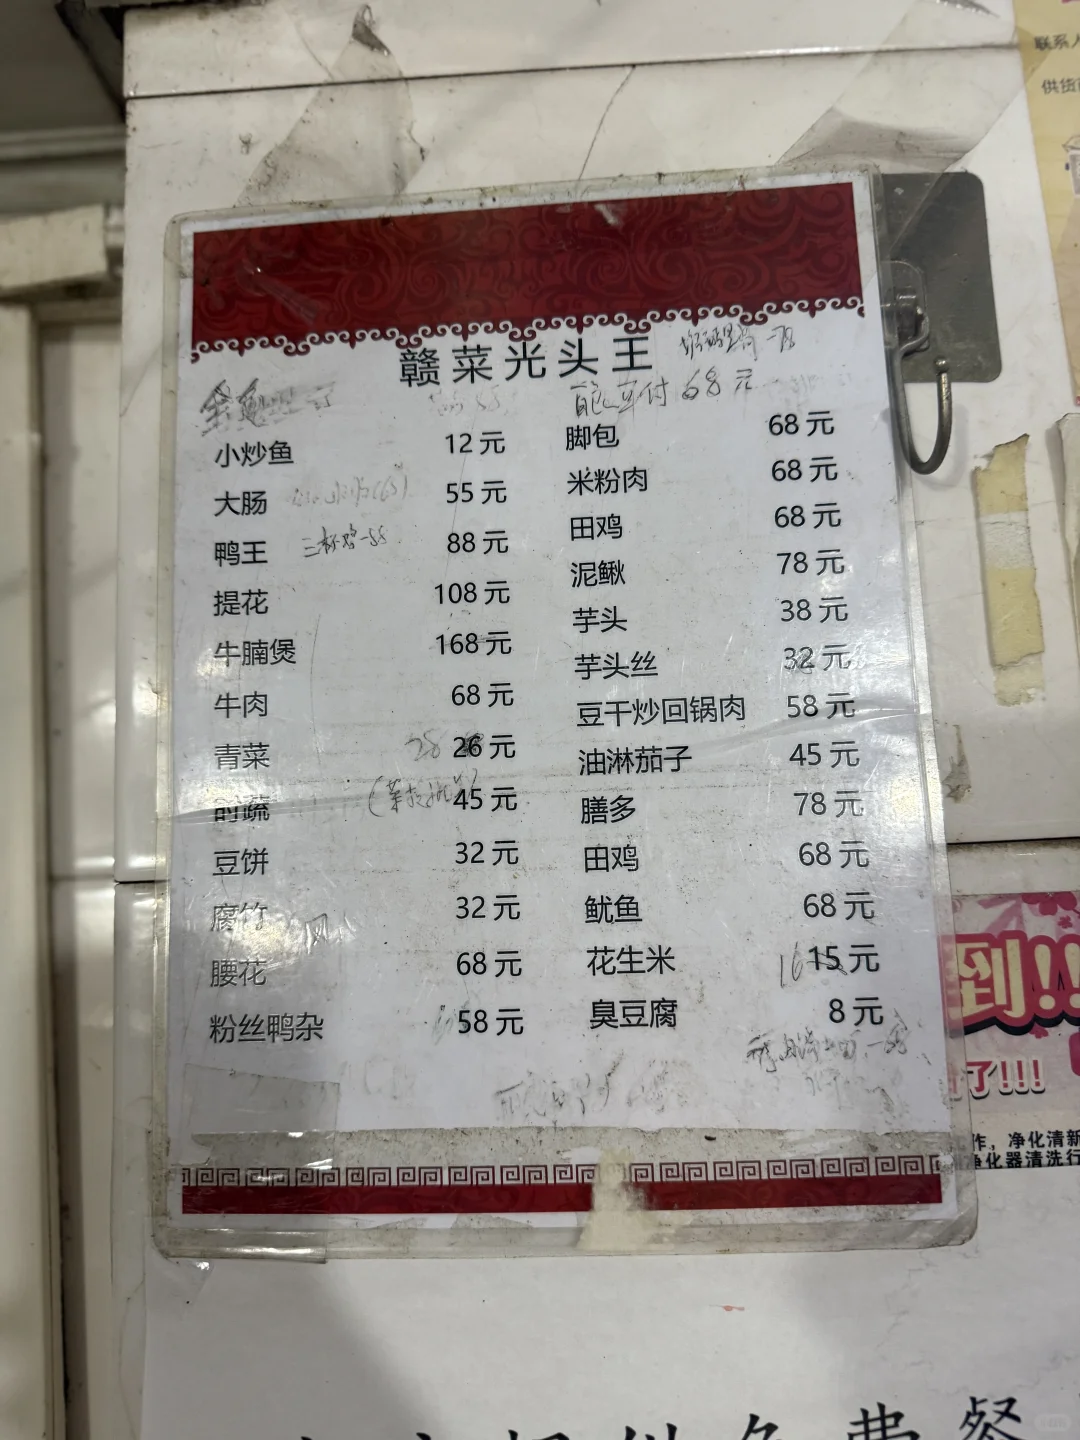 联系人
供货商
赣菜光头王
68元
小炒鱼 12元
大肠 55元
鸭王 三杯鸡-58 88元
提花 108元
牛腩煲 168元
牛肉 68元
青菜 28 26元
时蔬 45元
豆饼 32元
腐竹 32元
腰花 68元
粉丝鸭杂 58元
脚包 68元
米粉肉 68元
田鸡 68元
泥鳅 78元
芋头 38元
芋头丝 32元
豆干炒回锅肉 58元
油淋茄子 45元
膳多 78元
田鸡 68元
鱿鱼 68元
花生米 16 15元
臭豆腐 8元
到!!
了!!!
作，净化清新
净化器清洗行
提供免费餐